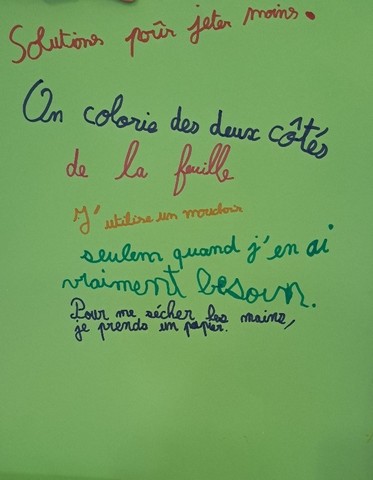 Solutions pour jeter moins.
On colorie des deux côtés
de la feuille
J'utilise un mouchoir
seulem quand j'en ai
vraiment besoin.
Pour me sécher les mains,
je prends un papier.